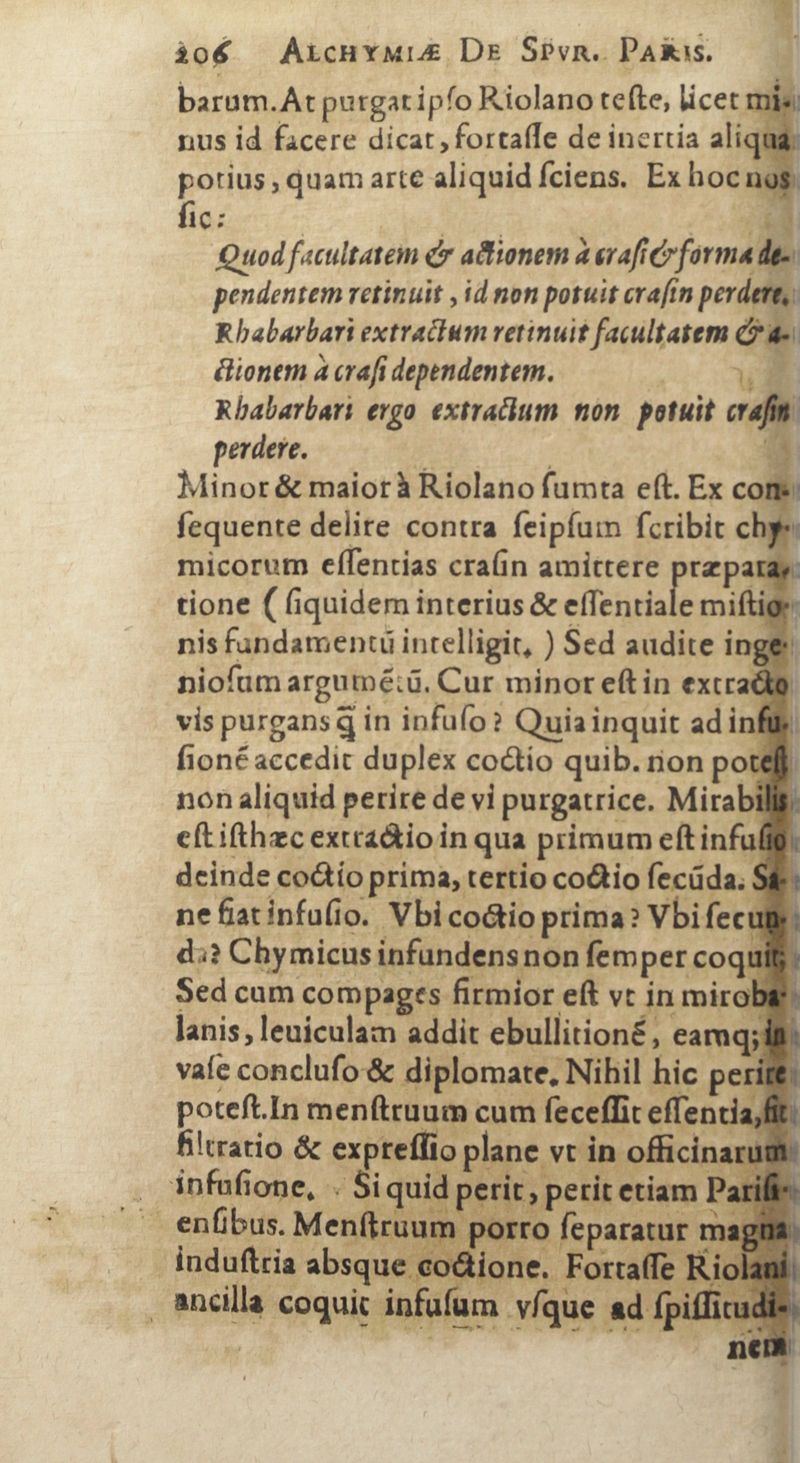 206 ALCHYMIÆ DE SPVR. PARIS.
barum. At purgat ipſo Riolano teſte, licet mi-
nus id facere dicat, fortaſſe de inertia aliqua
potius, quam arte aliquid ſciens. Ex hoc nos
ſic:
Quod facultatem & actionem à craſi & forma de-
pendentem retinuit, id non potuit craſin perdere.
Rhabarbari extractum retinuit facultatem & a-
ctionem à craſi dependentem.
Rhabarbari ergo extractum non potuit craſin
perdere.
Minor & maior à Riolano ſumta eſt. Ex con-
ſequente delire contra ſeipſum ſcribit chy-
micorum eſſentias craſin amittere præpara-
tione (ſiquidem interius & eſſentiale miſtio-
nis fundamentū intelligit.) Sed audite inge-
nioſum argumētū. Cur minor eſt in extracto
vis purgans q̄ in infuſo? Quia inquit ad infu-
ſionē accedit duplex coctio quib. non poteſt
non aliquid perire de vi purgatrice. Mirabilis
eſt iſthæc extractio in qua primum eſt infuſio
deinde coctio prima, tertio coctio ſecūda. Sa-
ne fiat infuſio. Vbi coctio prima? Vbi ſecun-
da? Chymicus infundens non ſemper coquit;
Sed cum compages firmior eſt vt in miroba-
lanis, leuiculam addit ebullitionē, eamq; in
vaſe concluſo & diplomate. Nihil hic perire
poteſt. In menſtruum cum ſeceſſit eſſentia, fit
filtratio & expreſſio plane vt in officinarum
infuſione. Si quid perit, perit etiam Pariſi-
enſibus. Menſtruum porro ſeparatur magna
induſtria absque coctione. Fortaſſe Riolani
ancilla coquit infuſum vſque ad ſpiſſitudi-
nem